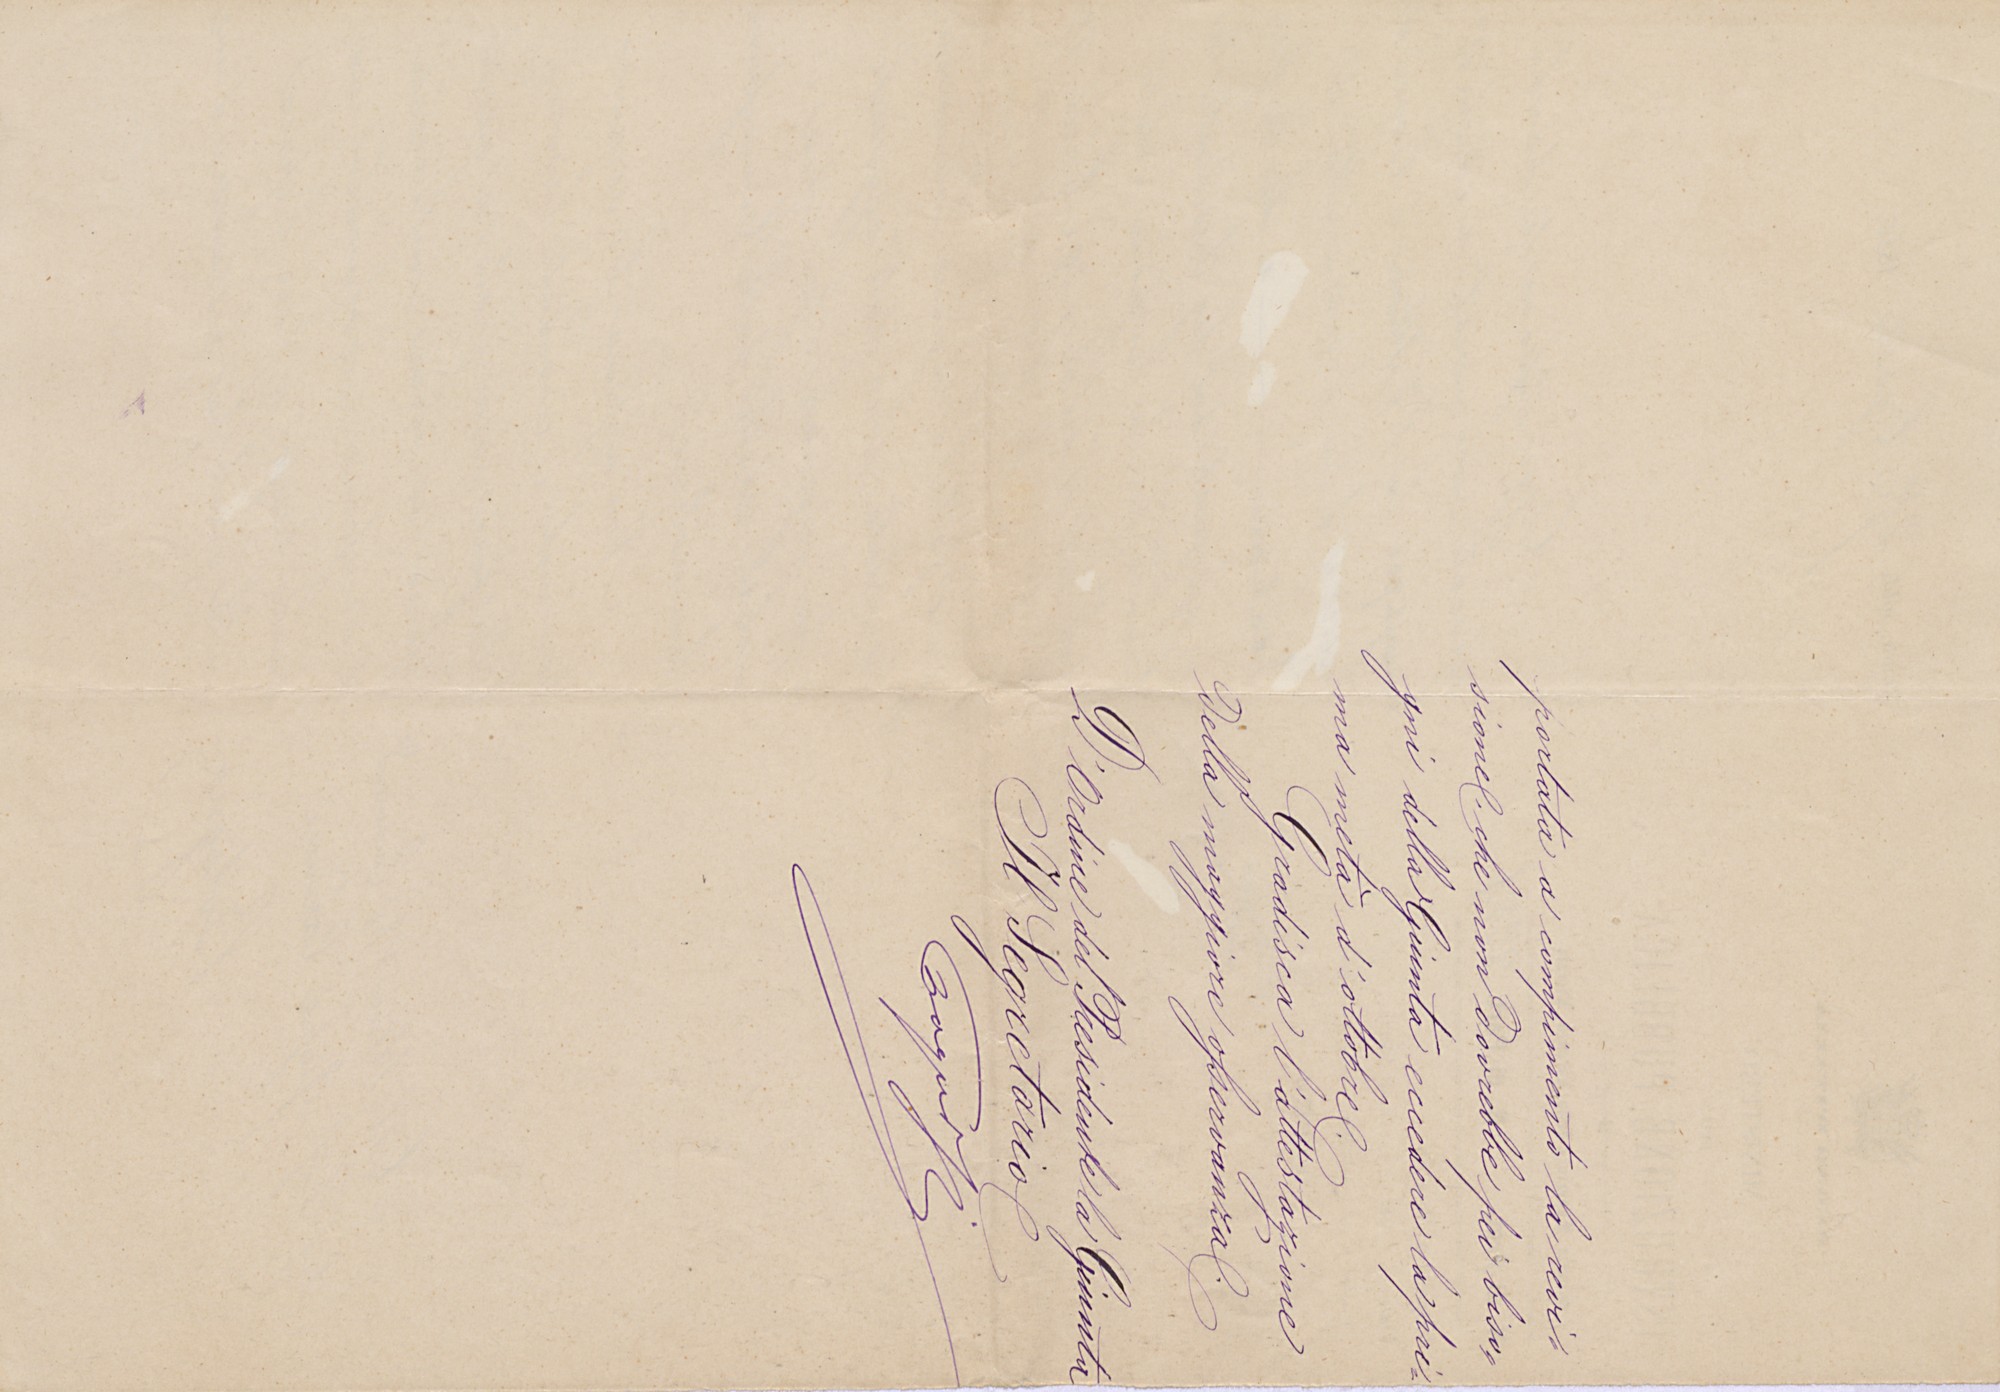 portata a compimento la revi-
sione, che non dovrebbe pei biso-
gni della Giunta eccedere la pri-
ma metà d'ottobre.
Gradisca l'attestazione
della maggiore osservanza.
D'Ordine del Presidente la Giunta
Il Segretario